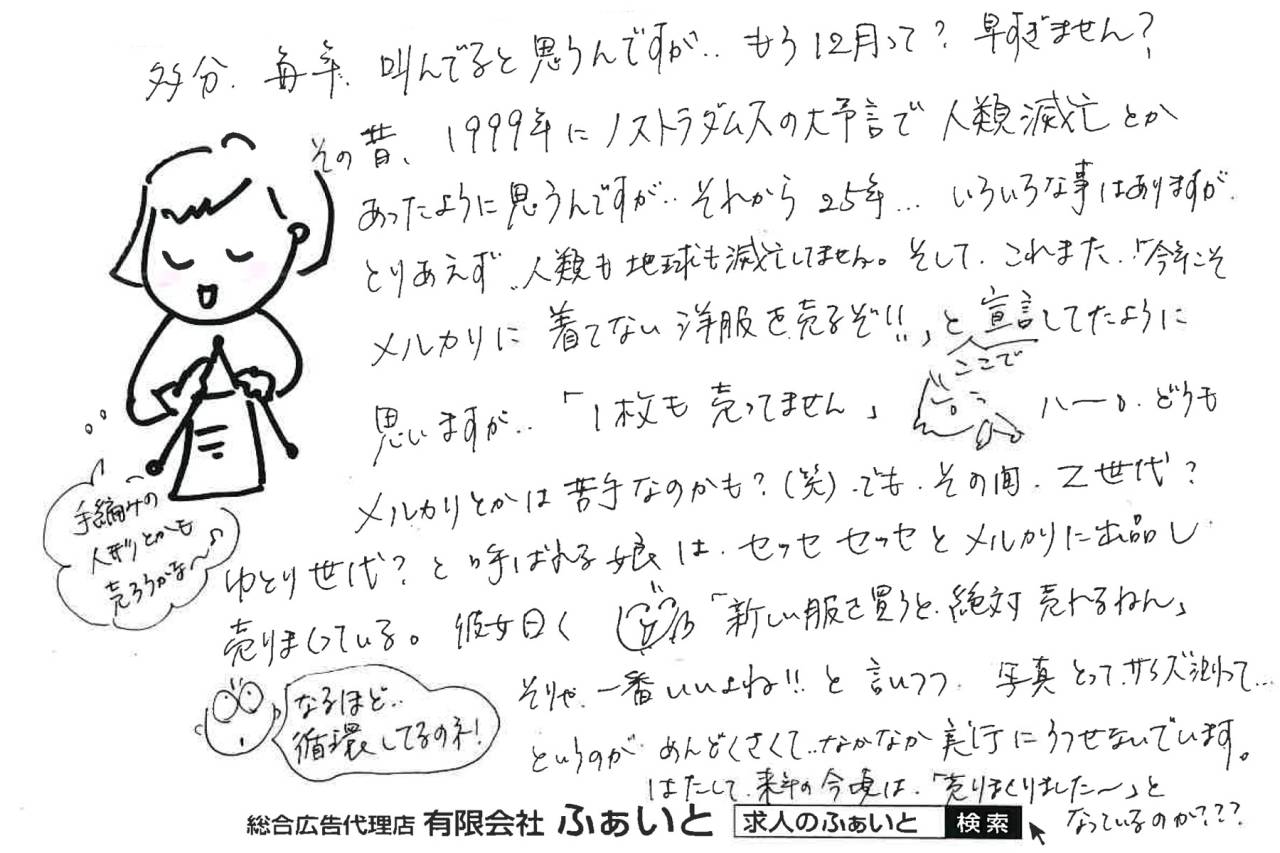 多分、毎年、叫んでると思うんですが‥もう12月って?早すぎません?
その昔、1999年にノストラダムスの大予言で人類滅亡とか
あったように思うんですが‥それから25年…いろいろな事はありますが、
とりあえず‥人類も地球も滅亡してません。そして、これまた、「今年こそ
メルカリに着てない洋服を売るぞ!!」と宣言してたように
ここで
思いますが‥「1枚も売ってません」
ハーー。どうも
メルカリとかは苦手なのかも?(笑)。でも、その間、Z世代?
ゆとり世代?と呼ばれる娘は、セッセセッセとメルカリに出品し
売りまくっている。彼女曰く「新しい服を買うと、絶対売れるねん」
そりゃ、一番いいよね!!と言いつつ、写真とって、サイズ測って…
というのがめんどくさくて‥なかなか実行にうつせないでいます。
はたして、来年の今頃は、「売りまくりました〜」と
なっているのか???
手編みの
人形とかも
売ろうかな〜♪
なるほど‥
循環してるのネ!
総合広告代理店 有限会社 ふぁいと 求人のふぁいと 検索